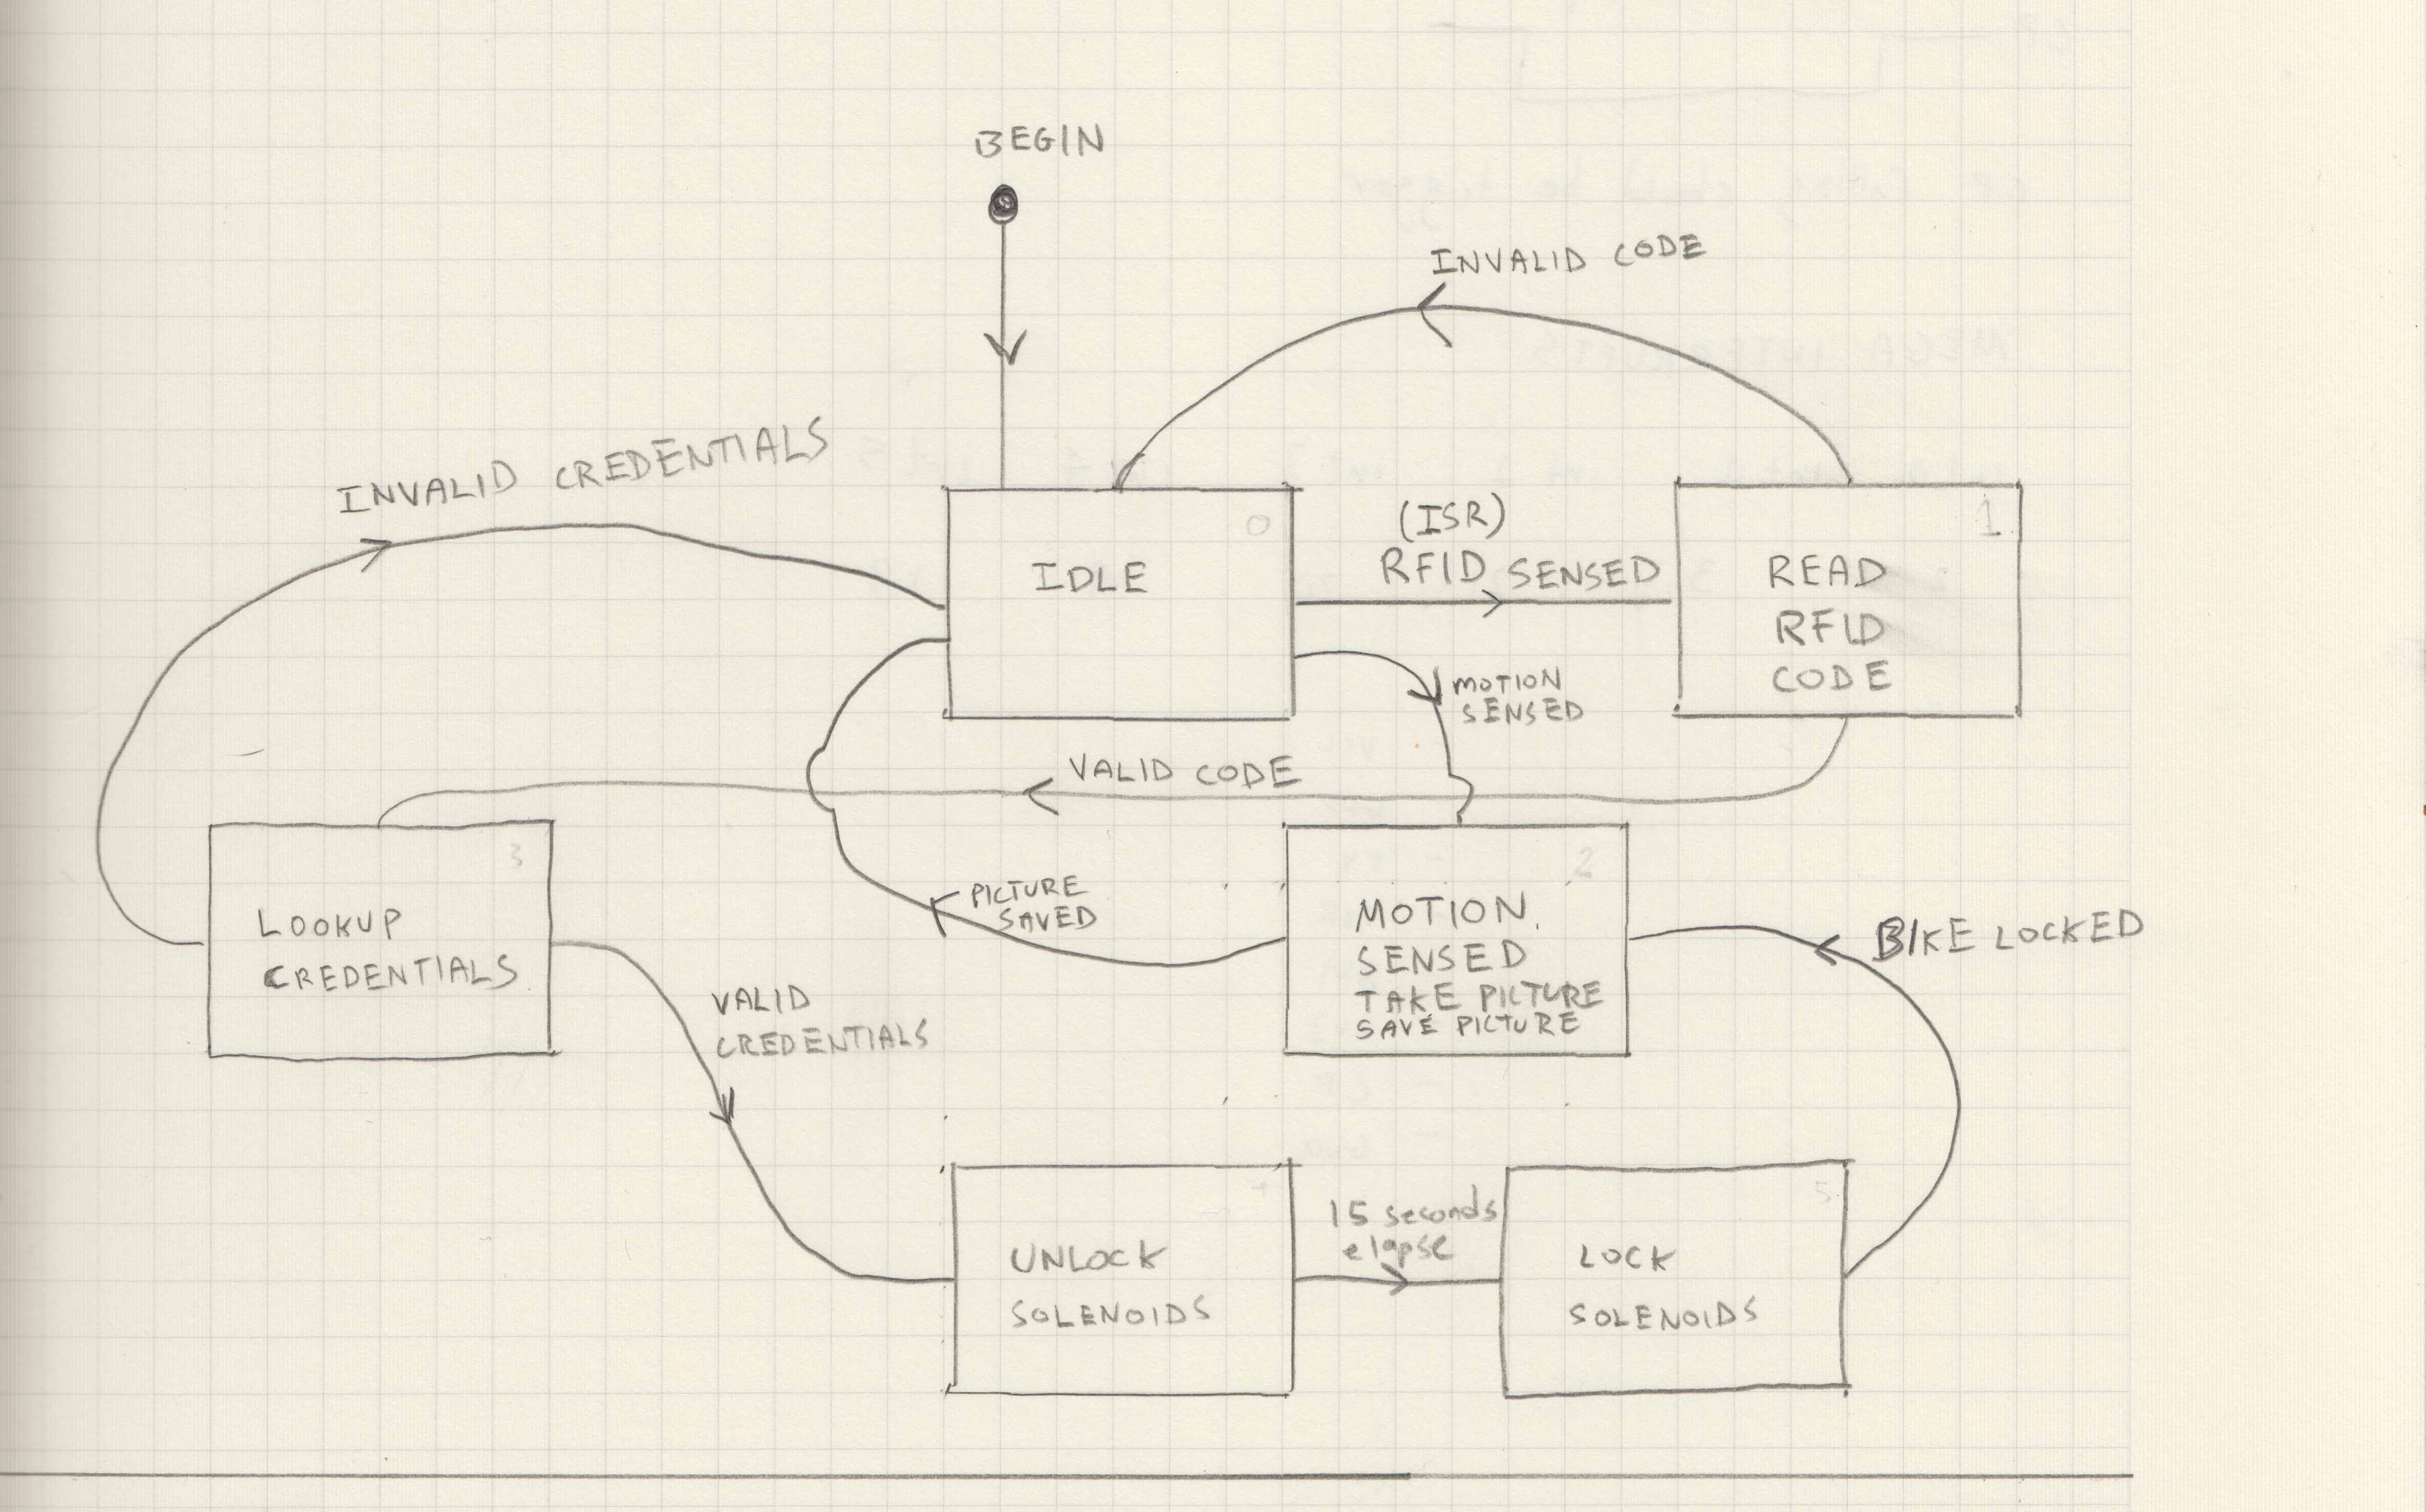 BEGIN
INVALID CODE
INVALID CREDENTIALS
0
IDLE
(ISR)
RFID SENSED
1
READ
RFID
CODE
MOTION
SENSED
VALID CODE
3
LOOKUP
CREDENTIALS
PICTURE
SAVED
2
MOTION
SENSED
TAKE PICTURE
SAVE PICTURE
BIKE LOCKED
VALID
CREDENTIALS
UNLOCK
SOLENOIDS
15 seconds
elapse
5
LOCK
SOLENOIDS